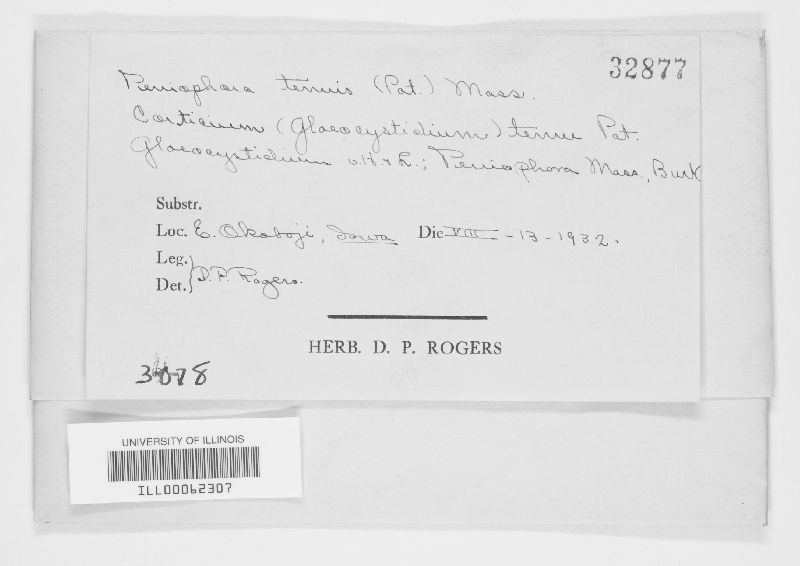 32877
Peniophora tenuis (Pat.) Mass.
Corticium (Gloeocystidium) tenue Pat.
Gloeocystidium v.H. & L.; Peniophora Mass., Burt
Substr.
Loc. E. Okoboji, Iowa Die VIII - 13 - 1932.
Leg.
Det. } D. P. Rogers.
HERB. D. P. ROGERS
UNIVERSITY OF ILLINOIS
ILL00062307